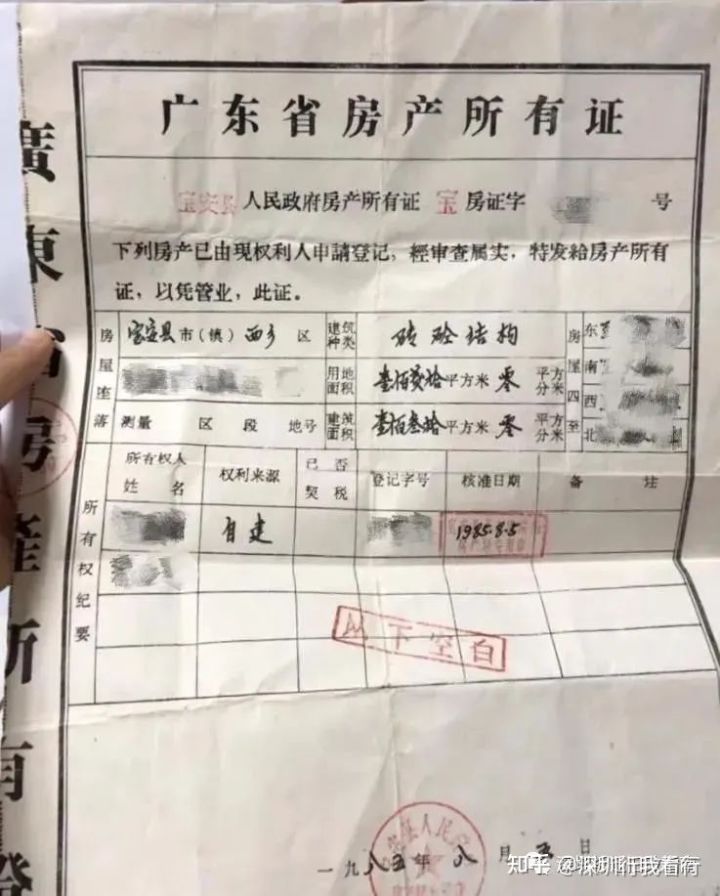 广东省房产所有证
宝安县人民政府房产所有证 宝 房证字 号
下列房产已由现权利人申請登记，經审查属实，特发給房产所有
证，以凭管业，此证。
房屋座落 宝安县市(镇)西乡 区 建筑种类 砖砼结构 房屋四至 东
用地面积 壹佰贰拾平方米零 平方分米 南
西
测量 区 段 地号 建筑面积 壹佰叁拾平方米零 平方分米 北
所有权纪要 所有权人姓名 权利来源 已否契税 登记字号 核准日期 备 注
自建 1985.8.5
以下空白
一九八五年八月五日
廣東省房產所有證
知乎 @深圳行我看行